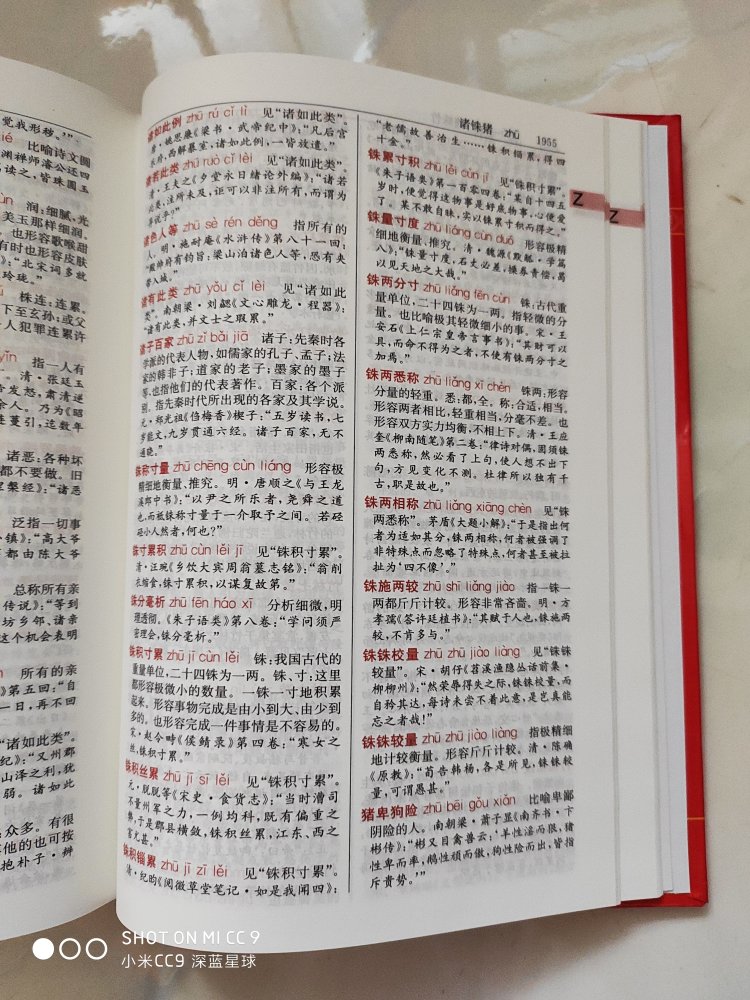 觉我形秽。'”
比喻诗文圆
渊禅师濬公还四
读之，皆珠圆玉
润：细腻，光
美玉那样细润。
也形容歌喉甜
有时也形容皮肤
“北宋词多就
玲珑。”
株连：连累。
下至玄孙；或父
人犯罪连累许
指一人有
清·张廷玉
发怒，肃清逆
余人。乃为《昭
连蔓引，迄数年
诸恶：各种坏
都不要做。旧
涅槃经》：“诸恶
泛指一切事
小镇》：“高大爷
都由陈大爷
总称所有亲
传说》：“等到
坊乡邻、诸亲
这个机会表明
所有的亲
第五回：“自
一日，再不回
“诸如此类”。
》：“又州郡
山泽之利，犹
弱。诸如此
众多。有很
其他的也可按
抱朴子·辨
诸铢猪 zhū 1955
诸如此例 zhū rú cǐ lì 见“诸如此类”。
唐·姚思廉《梁书·武帝纪中》：“凡后宫
乐府，西解暴室，诸如此例，一皆放遣。”
诸若此类 zhū ruò cǐ lèi 见“诸如此类”。
清·王夫之《夕堂永日绪论外编》：“诸若
此类，注所未及，讵可以非注所有，而谓为
异说乎？”
诸色人等 zhū sè rén děng 指所有的
人。明·施耐庵《水浒传》第八十一回：
“殿帅府有钧旨：梁山泊诸色人等，恐有夹
带入城。”
诸有此类 zhū yǒu cǐ lèi 见“诸如此
类”。南朝梁·刘勰《文心雕龙·程器》：
“诸有此类，并文士之瑕累。”
诸子百家 zhū zǐ bǎi jiā 诸子：先秦时各
学派的代表人物，如儒家的孔子、孟子；法
家的韩非子；道家的老子；墨家的墨子
等，也指他们的代表著作。百家：各个派
别。指先秦时代所出现的各家及其学说。
元·郑光祖《㑇梅香》楔子：“五岁读书，七
岁能文，九岁贯通六经。诸子百家，无不
通晓。”
铢称寸量 zhū chēng cùn liáng 形容极
精细地衡量、推究。明·唐顺之《与王龙
溪郎中书》：“以尹之所乐者，尧舜之道
也，而祗铢称寸量于一介取予之间。若硁
硁小人然者，何也？”
铢寸累积 zhū cùn lěi jī 见“铢积寸累”。
清·汪琬《乡饮大宾周翁墓志铭》：“翁削
衣缩食，铢寸累积，以谋复故第。”
铢分毫析 zhū fēn háo xī 分析细微，明
理透彻。《朱子语类》第八卷：“学问须严
密理会，铢分毫析。”
铢积寸累 zhū jī cùn lěi 铢：我国古代的
重量单位，二十四铢为一两。铢、寸：这里
都形容极微小的数量。一铢一寸地积累
起来。形容事物完成是由小到大、由少到
多的。也形容完成一件事情是不容易的。
宋·赵令畤《侯鲭录》第四卷：“寒女之
丝，铢积寸累。”
铢积丝累 zhū jī sī lěi 见“铢积寸累”。
元·脱脱等《宋史·食货志》：“当时漕司
不量州军之力，一例均科，既有偏重之
弊，于是郡县横敛，铢积丝累，江东、西之
害尤甚。”
铢积锱累 zhū jī zī lěi 见“铢积寸累”。
清·纪昀《阅微草堂笔记·如是我闻四》：
“老儒故善治生……铢积锱累，得四
十金。”
铢累寸积 zhū lěi cùn jī 见“铢积寸累”。
《朱子语类》第一百零四卷：“某自十四五
岁时，便觉得这物事是好底物事，心便爱
了。某不敢自昧，实以铢累寸积而得之。”
铢量寸度 zhū liáng cùn duó 形容极精
细地衡量、推究。清·魏源《默觚·学篇
八》：“铢量寸度，石丈必差，操券责偿，曷
以见天地之大哉。”
铢两分寸 zhū liǎng fēn cùn 铢：古代重
量单位，二十四铢为一两。指轻微的分
量。也比喻极其轻微细小的事。宋·王
安石《上仁宗皇帝言事书》：“其财可以
具，而命不得为之者，不使有铢两分寸之
加焉。”
铢两悉称 zhū liǎng xī chèn 铢两：形容
分量的轻重。悉：都，全。称：合适，相当。
形容两者相比，轻重相当，分毫不差。也
形容双方实力均衡，不相上下。清·王应
奎《柳南随笔》第二卷：“律诗对偶，固须铢
两悉称，然必看了上句，使人想不出下
句，方见变化不测。杜律所以独有千
古，职是故也。”
铢两相称 zhū liǎng xiāng chèn 见“铢
两悉称”。茅盾《大题小解》：“于是指出何
者为适如其分，铢两相称，何者被强调了
非特殊点而忽略了特殊点，何者甚至被拉
扯为‘四不像’。”
铢施两较 zhū shī liǎng jiào 指一铢一
两都斤斤计较。形容非常吝啬。明·方
孝孺《答许廷植书》：“其赋于人也，铢施两
较，不肯多与。”
铢铢校量 zhū zhū jiào liàng 见“铢铢
较量”。宋·胡仔《苕溪渔隐丛话前集·
柳柳州》：“然荣辱得失之际，铢铢校量，而
自矜其达，每诗未尝不着此意，是岂真能
忘之者哉！”
铢铢较量 zhū zhū jiào liàng 指极精细
地计较衡量。形容斤斤计较。清·陈确
《原教》：“荀告韩杨，各是所见，铢铢较
量，可谓愚甚。”
猪卑狗险 zhū bēi gǒu xiǎn 比喻卑鄙
阴险的人。南朝梁·萧子显《南齐书·卞
彬传》：“彬又目禽兽云：‘羊性淫而很，猪
性卑而率，鹅性顽而傲，狗性险而出，皆指
斥贵势。’”
Z
Z
SHOT ON MI CC 9
小米CC9 深蓝星球